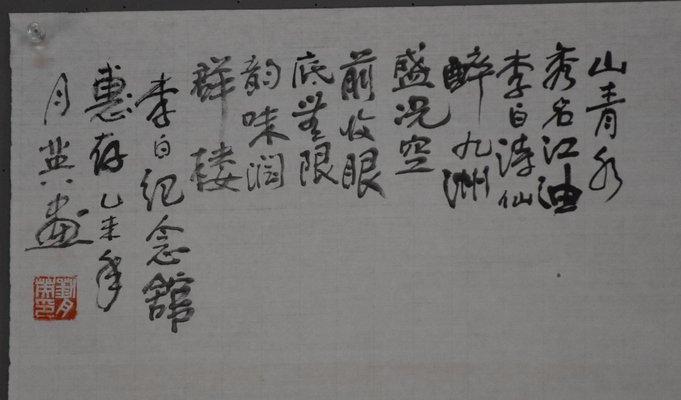 山青水
秀名江油
李白诗仙
醉九洲
盛况空
前收眼
底無限
韵味润
群楼
李白纪念舘
惠存乙未年
月英画